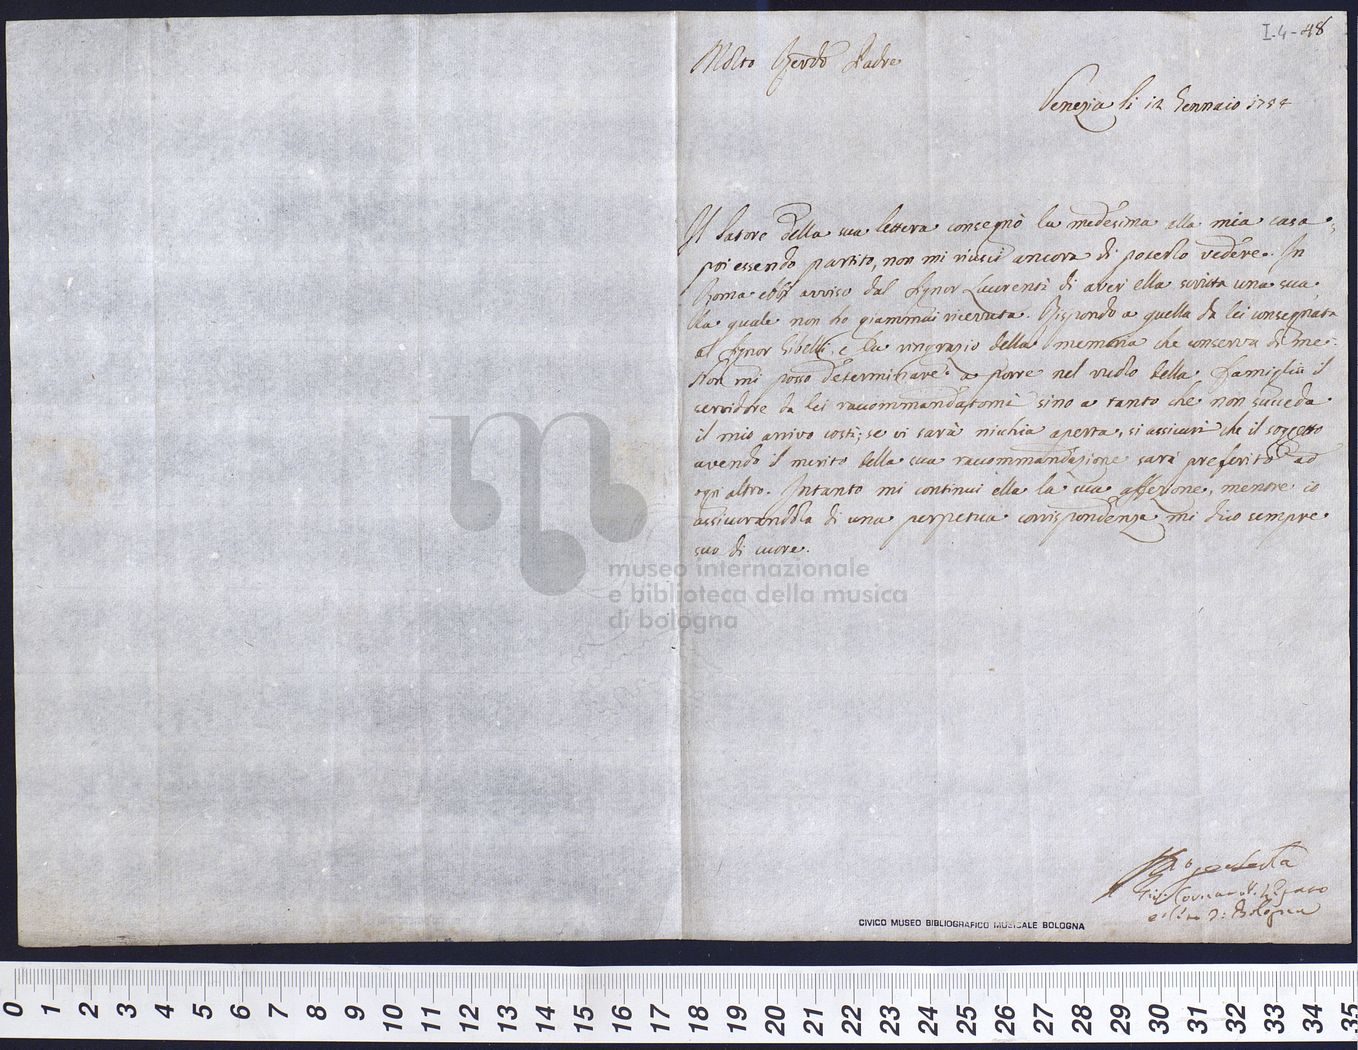 I-4-48
Molto Revdo Padre
Venezia li 12 Gennaio 1754
Il Latore della sua lettera consegnò la medesima alla mia casa,
poi essendo partito, non mi riuscì ancora di poterlo vedere. In
Roma ebbi avviso dal Signor Laurenti di aver ella scritta una sua,
la quale non ho giammai ricevuta. Rispondo a quella da lei consegnata
al Signor Gibelli, e la ringrazio della memoria che conserva di me.
Non mi posso determinare a porre nel ruolo della Famiglia il
servidore da lei raccommandatomi sino a tanto che non succeda
il mio arrivo costì; se vi sarà nicchia aperta, si assicuri che il soggetto
avendo il merito della sua raccommandazione sarà preferito ad
ogni altro. Intanto mi continui ella la sua affezione, mentre io
assicurandola di una perpetua corrispondenza mi dico sempre
suo di cuore.
di Bologna
museo internazionale
e biblioteca della musica
di bologna
CIVICO MUSEO BIBLIOGRAFICO MUSICALE BOLOGNA
0 1 2 3 4 5 6 7 8 9 10 11 12 13 14 15 16 17 18 19 20 21 22 23 24 25 26 27 28 29 30 31 32 33 34 35